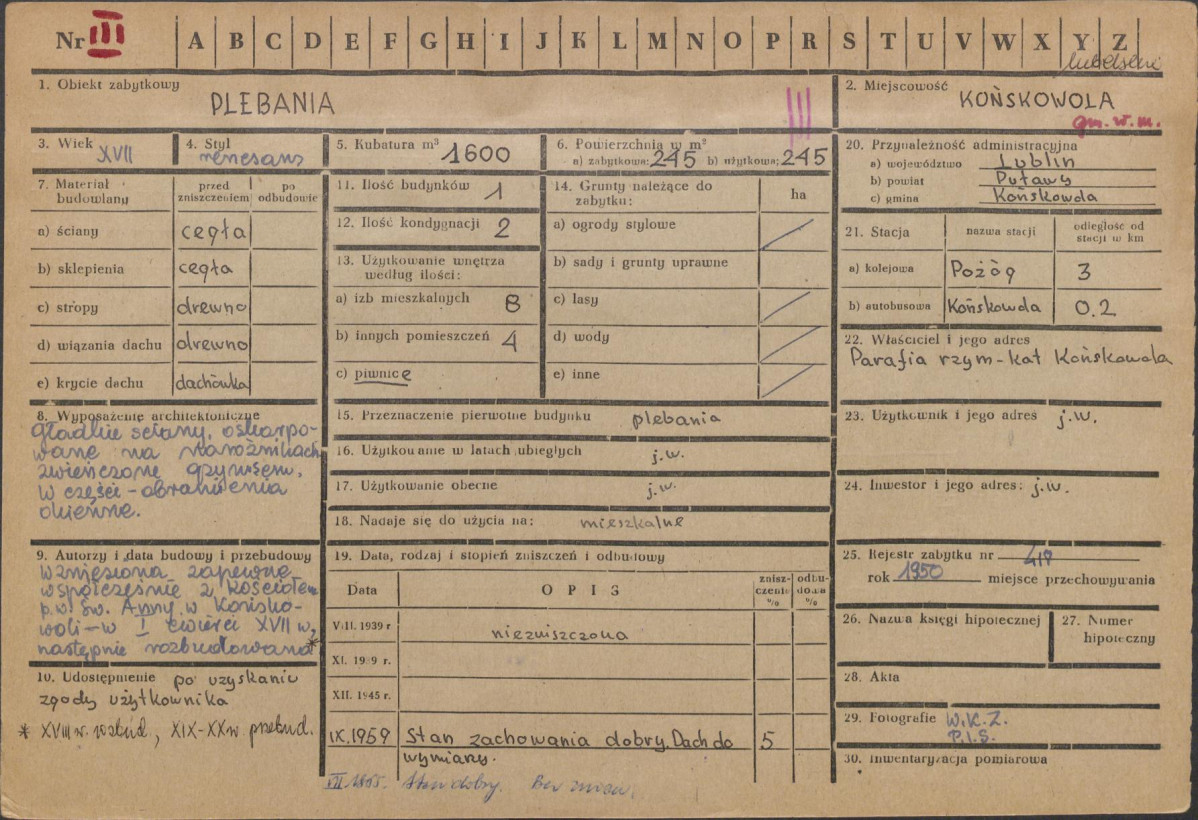 Nr III A B C D E F G H I J K L M N O P R S T U V W X Y Z
lubelskie
1. Obiekt zabytkowy
PLEBANIA
III
2. Miejscowość
KOŃSKOWOLA
gm. w. m.
3. Wiek
XVII
4. Styl
renesans
5. Kubatura m³ 1600
6. Powierzchnia w m²
a) zabytkowa: 245 b) użytkowa: 245
20. Przynależność administracyjna
a) województwo Lublin
b) powiat Puławy
c) gmina Końskowola
7. Materiał budowlany
przed zniszczeniem
po odbudowie
a) ściany cegła
b) sklepienia cegła
c) stropy drewno
d) wiązania dachu drewno
e) krycie dachu dachówka
11. Ilość budynków 1
12. Ilość kondygnacji 2
13. Użytkowanie wnętrza według ilości:
a) izb mieszkalnych 8
b) innych pomieszczeń 4
c) piwnice
14. Grunty należące do zabytku:
ha
a) ogrody stylowe
b) sady i grunty uprawne
c) lasy
d) wody
e) inne
21. Stacja
nazwa stacji
odległość od stacji w km
a) kolejowa Pożóg 3
b) autobusowa Końskowola 0.2
22. Właściciel i jego adres
Parafia rzym-kat Końskowola
8. Wyposażenie architektoniczne
gładkie ściany, oskarpo-
wane na narożnikach
zwieńczone gzymsem,
w części - obramienia
okienne.
15. Przeznaczenie pierwotne budynku plebania
16. Użytkowanie w latach ubiegłych j.w.
17. Użytkowanie obecne j.w.
18. Nadaje się do użycia na: mieszkalne
23. Użytkownik i jego adres j.w.
24. Inwestor i jego adres: j.w.
9. Autorzy i data budowy i przebudowy
wzniesiona zapewne
współcześnie z kościołem
p.w. Św. Anny w Końsko-
woli - w I ćwierci XVII w,
następnie rozbudowana*
10. Udostępnienie po uzyskaniu
zgody użytkownika
* XVIII w. rozbud., XIX-XX w. przebud.
19. Data, rodzaj i stopień zniszczeń i odbudowy
Data
OPIS
zniszczenie %
odbudowa %
VIII. 1939 r. niezniszczona
XI. 1939 r.
XII. 1945 r.
IX.1959 Stan zachowania dobry. Dach do 5
wymiany.
Stan dobry. Bez zmian.
25. Rejestr zabytku nr
rok 1950 miejsce przechowywania
26. Nazwa księgi hipotecznej
27. Numer hipoteczny
28. Akta
29. Fotografie W.K.Z.
P.I.S.
30. Inwentaryzacja pomiarowa